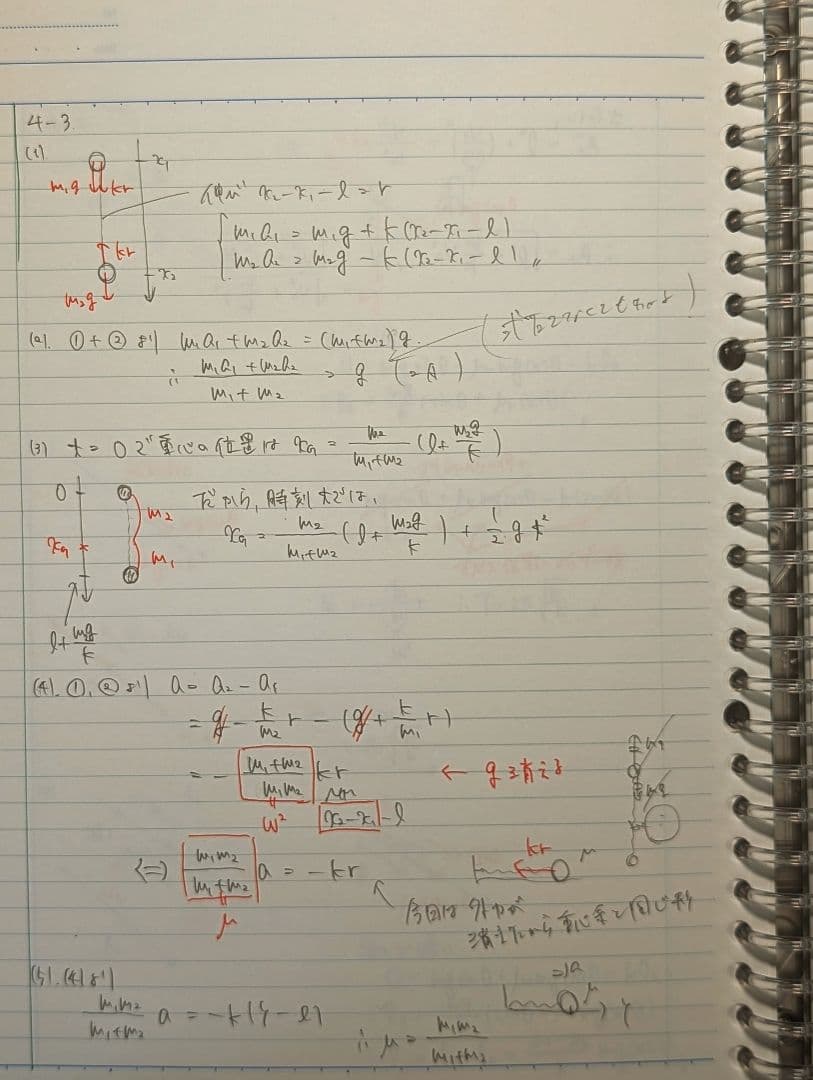 4-3.
(1)
x₁
m₁g kr
伸び x₂-x₁-l=r
m₁a₁ = m₁g + k(x₂-x₁-l)
kr
m₂a₂ = m₂g - k(x₂-x₁-l)〃
x₂
m₂g
(2). ①+②より m₁a₁+m₂a₂=(m₁+m₂)g.
∴ (m₁a₁+m₂a₂)/(m₁+m₂) = g (=A)
(3) t=0で重心の位置は x_G = m₂/(m₁+m₂) (l+m₂g/k)
0
m₂
だから, 時刻tでは,
x_G = m₂/(m₁+m₂) (l+m₂g/k) + 1/2 g t²
x_G
m₁
l+m₂g/k
(4). ①,②より a = a₂-a₁
= g - k/m₂ r - (g + k/m₁ r)
= - (m₁+m₂)/(m₁m₂) kr ← g消える
ω² x₂-x₁-l
⇔ m₁m₂/(m₁+m₂) a = -kr
kr μ
μ
今回は外力が
消えたから重心系と同じ形
(5).(4)より
m₁m₂/(m₁+m₂) a = -k(y-l)
⇒a
μ y
∴ μ = m₁m₂/(m₁+m₂)